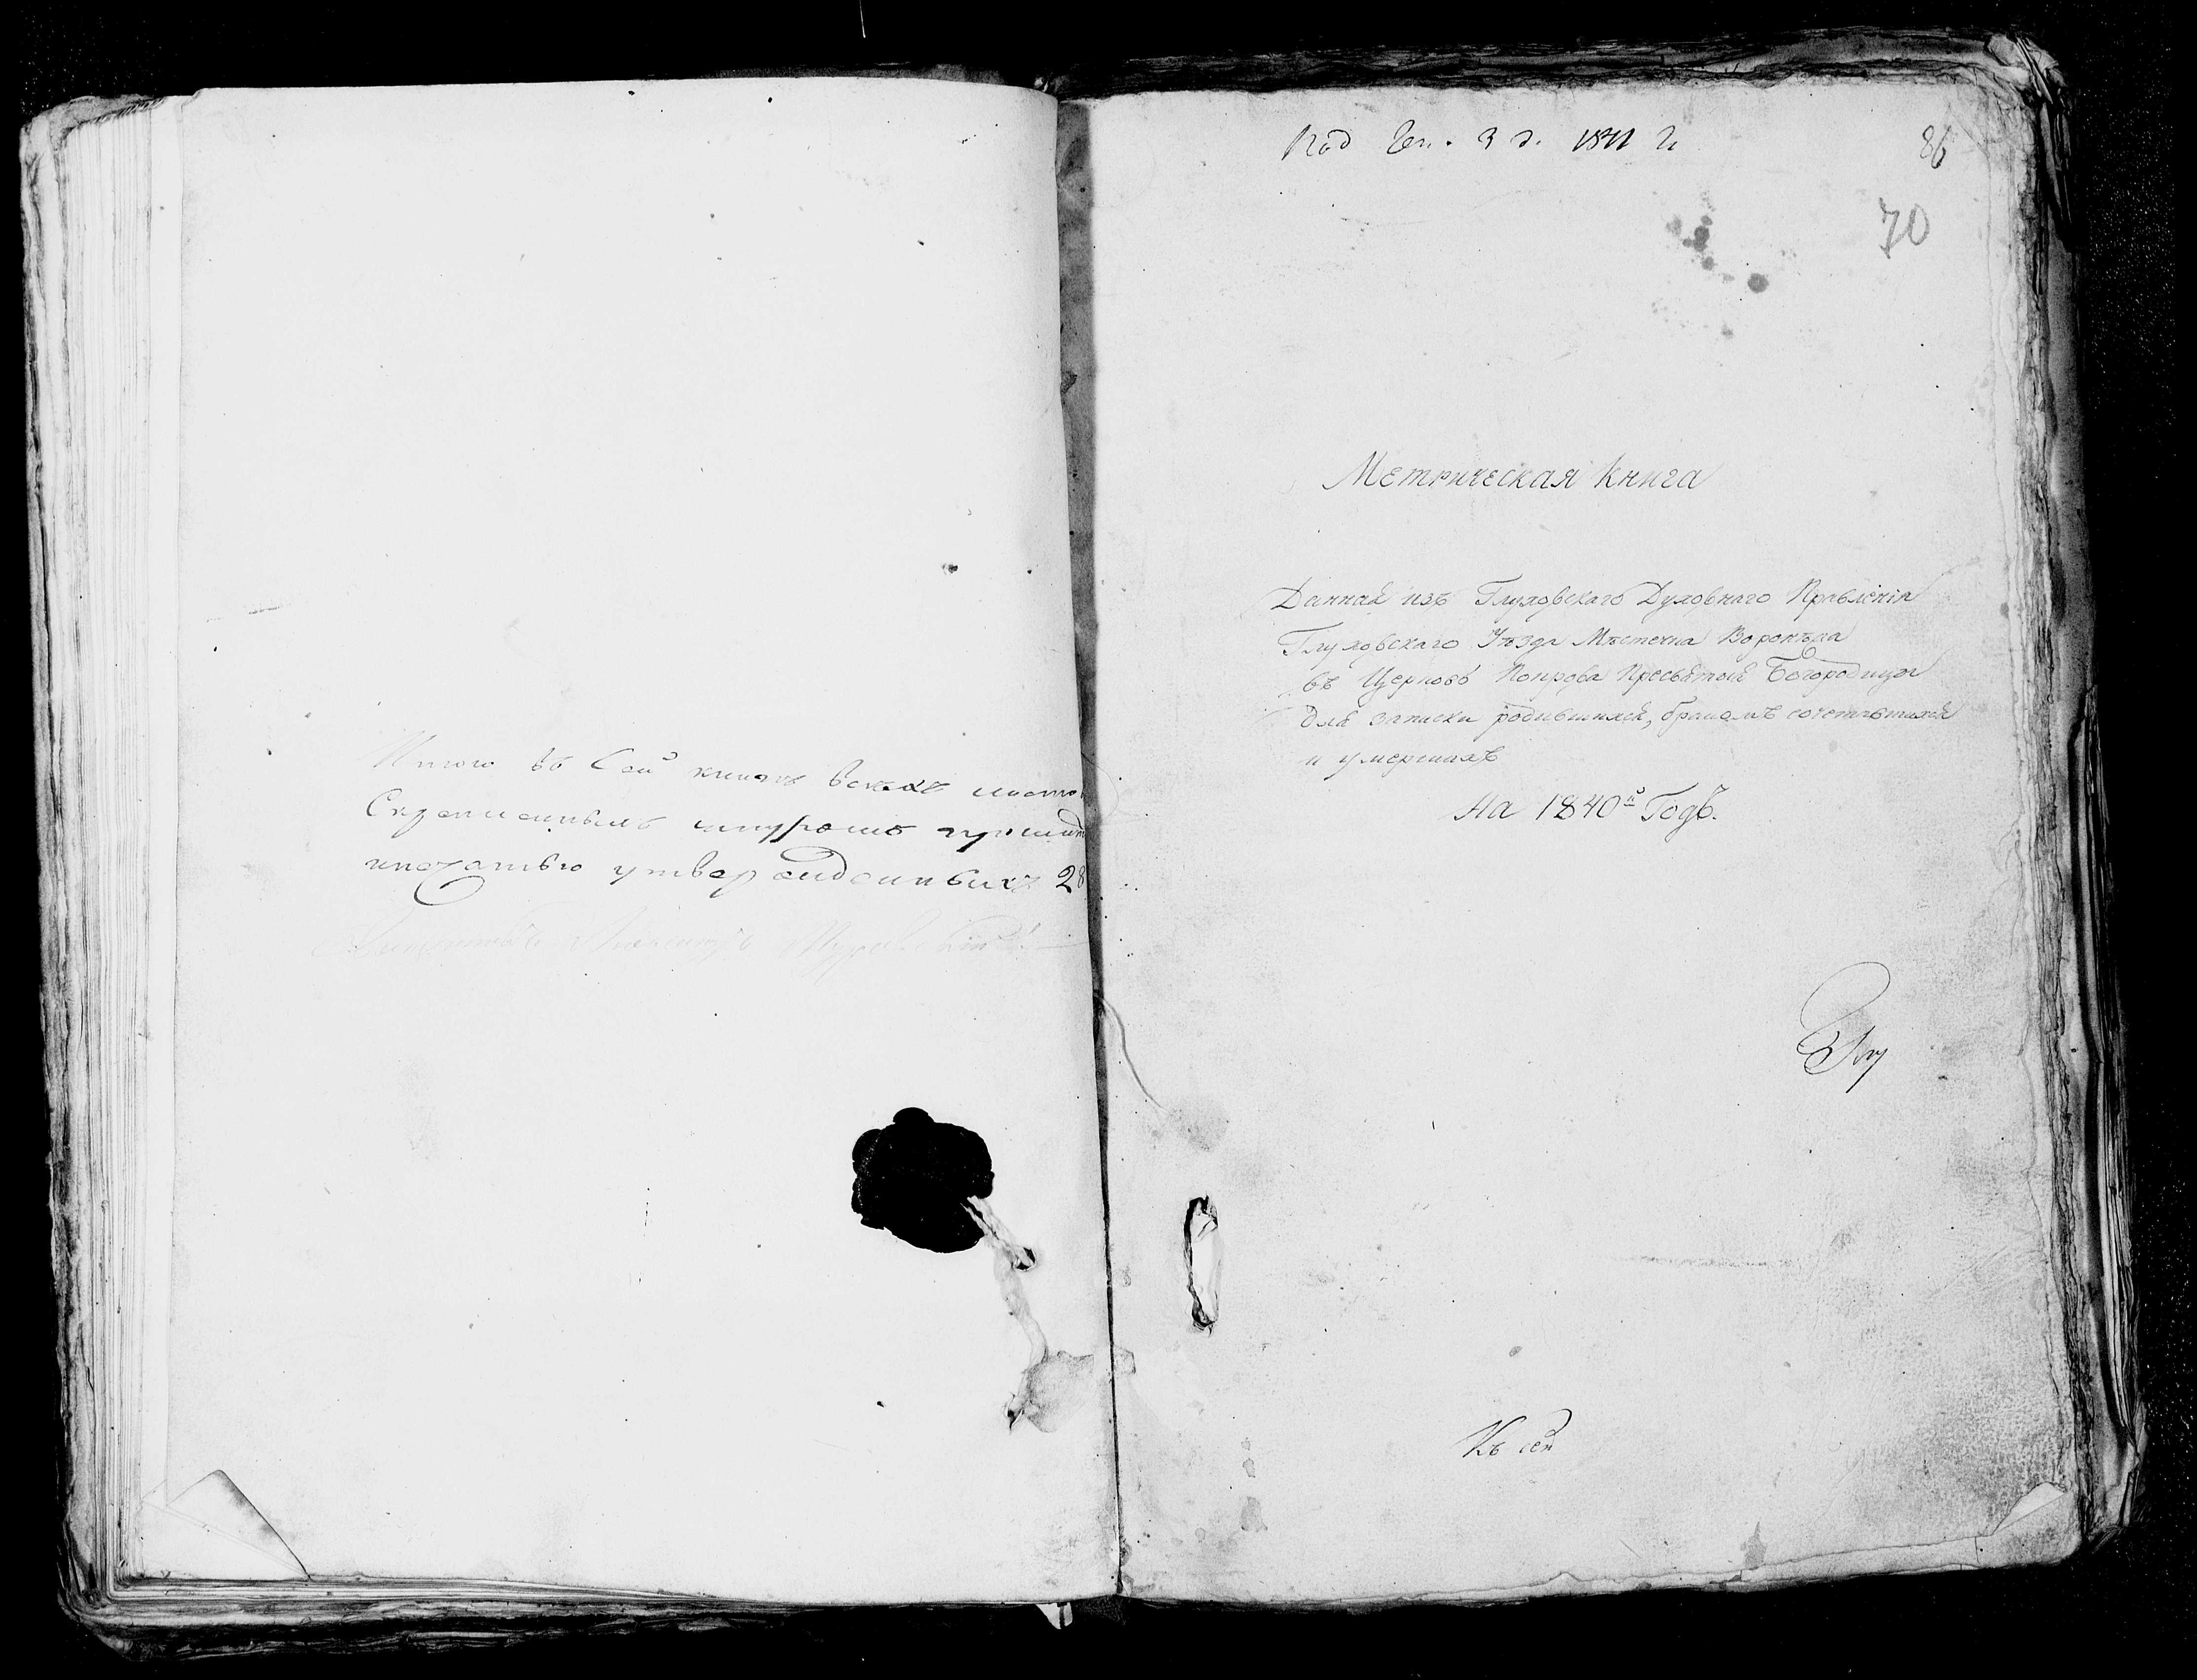 Итого въ Сей книгѣ всѣхъ листо
Скрепленныхъ шнуромъ прошит
ипечатью утвержденныхъ 28
Под Ген. 3 д. 1841 г.
86
70
Метрическая Книга
Данная изъ Глуховскаго Духовнаго Правленія
Глуховскаго Уѣзда Мѣстечка Воронѣжа
въ Церковь Покрова Пресвятой Богородицы
для записки родившихся, бракомъ сочетавшихся
и умершихъ
На 1840й Годъ.
Глу
Къ сей